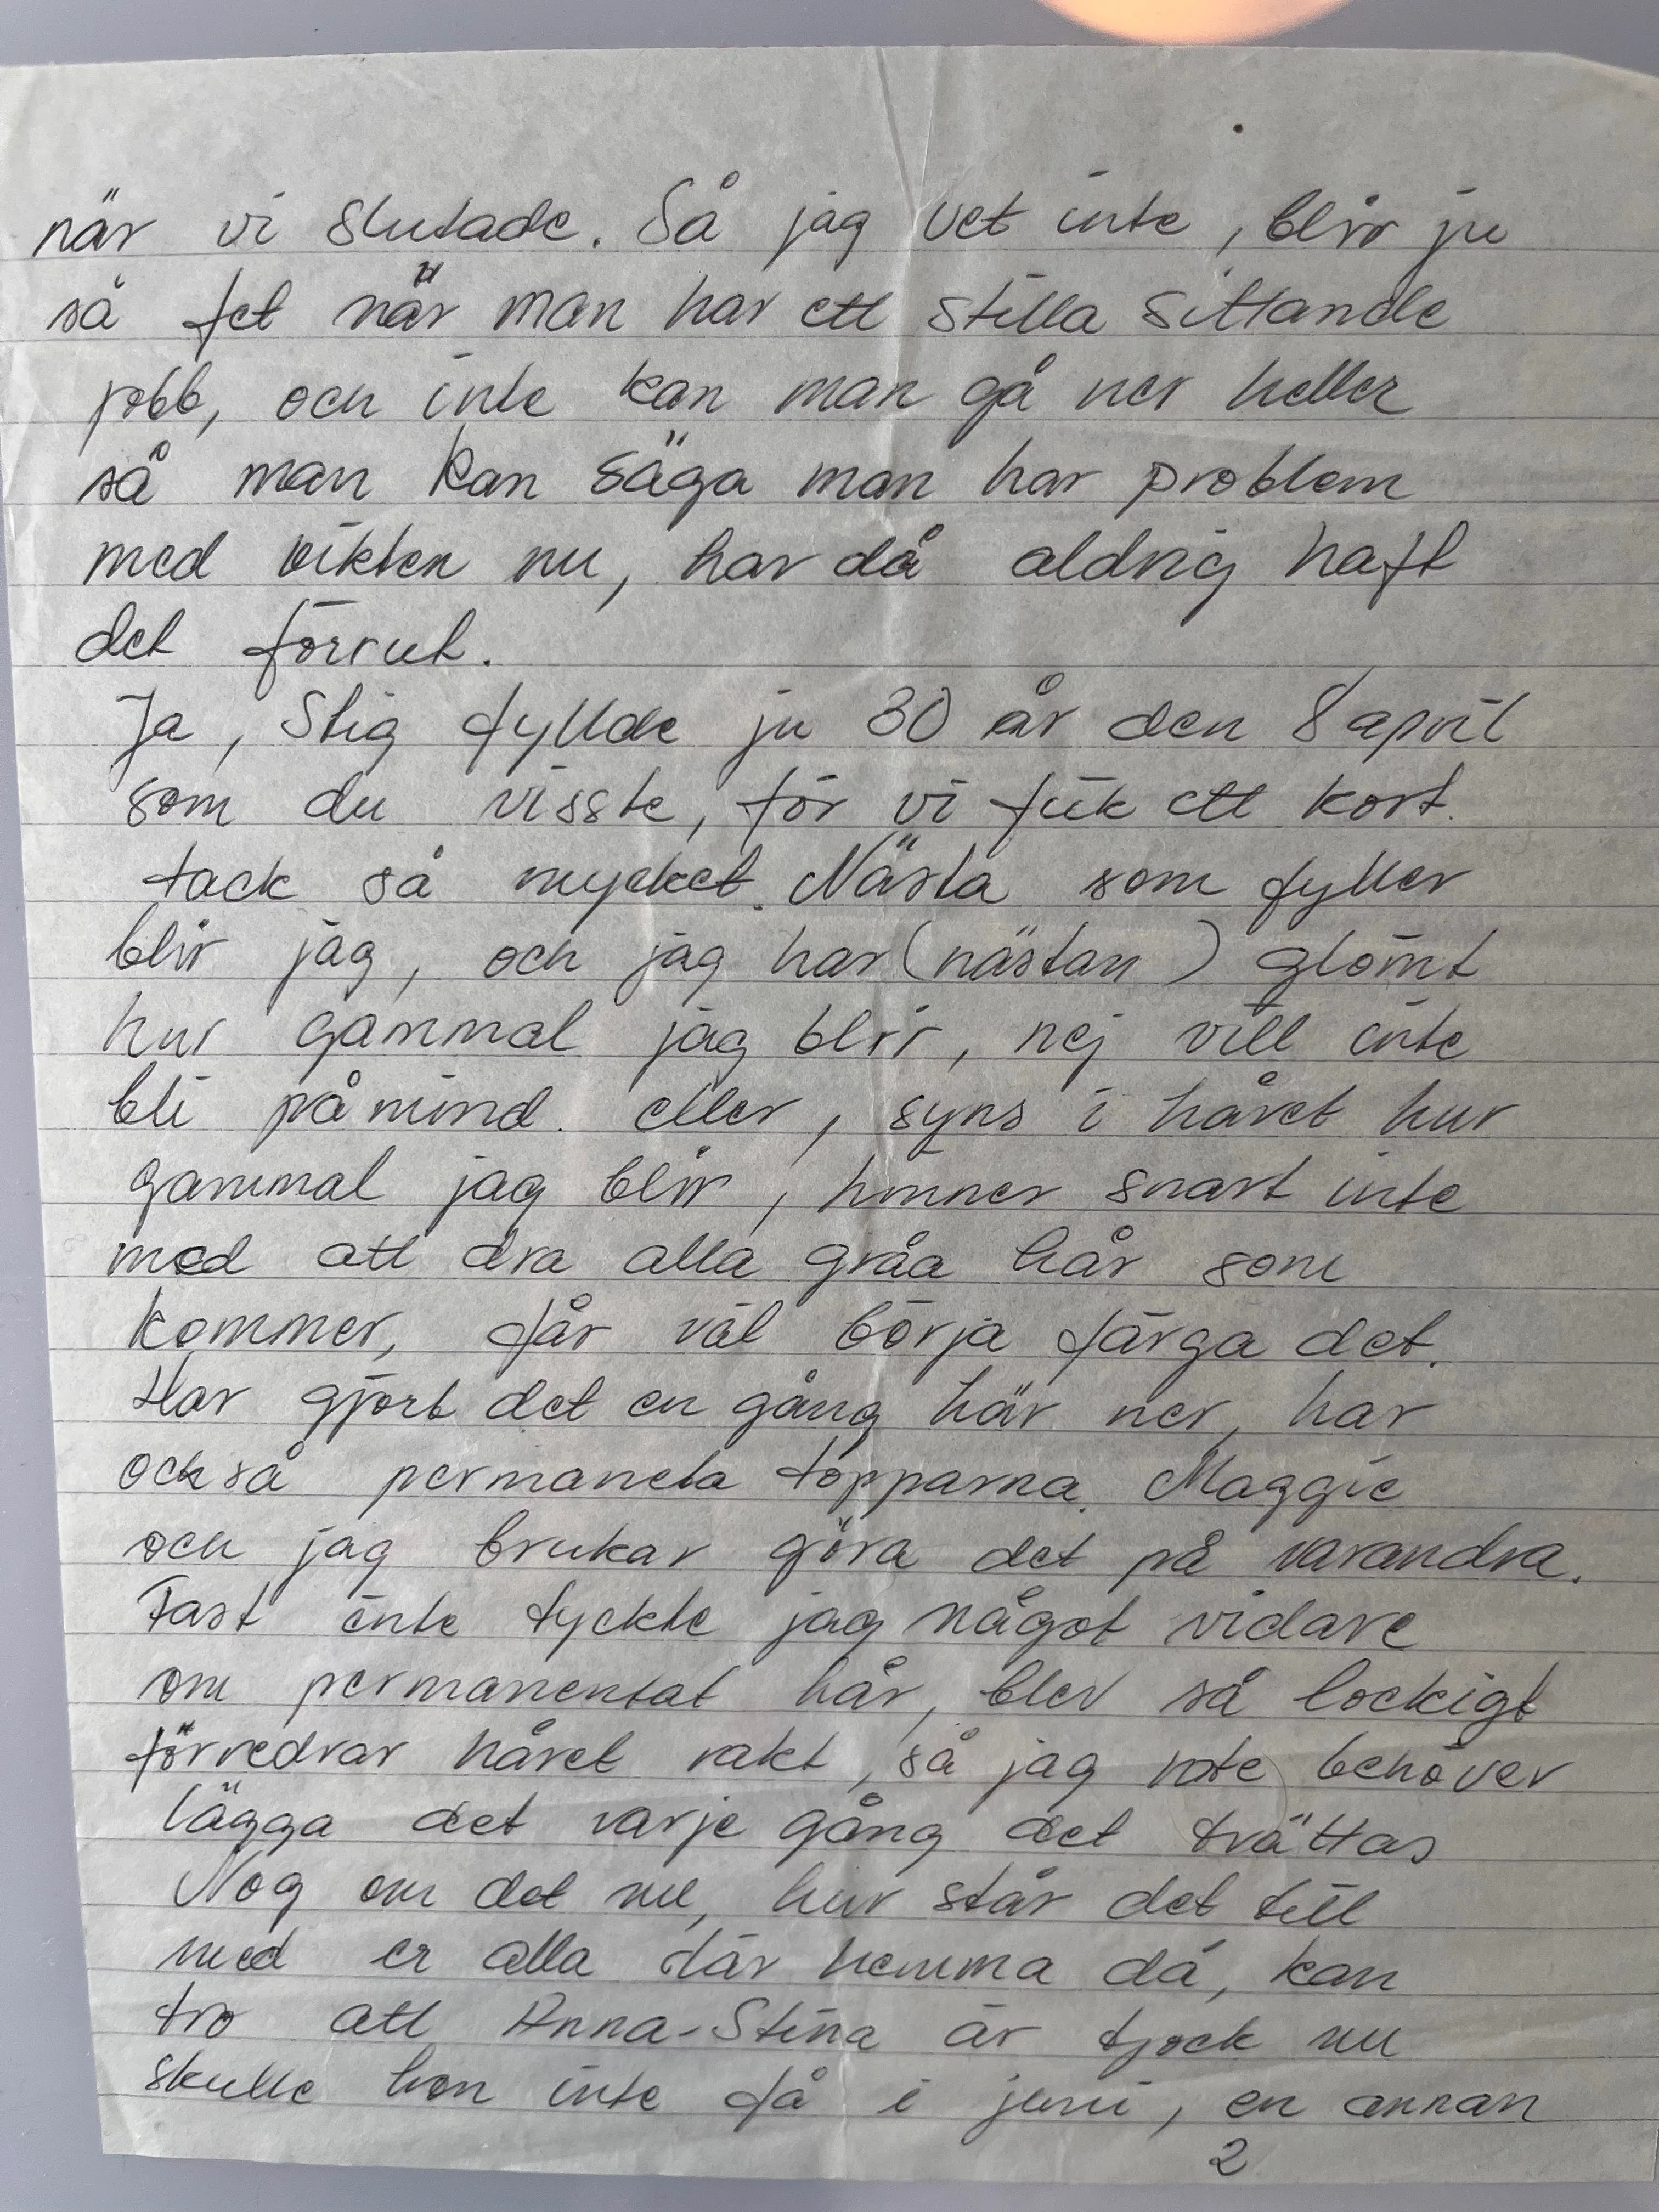 när vi slutade. Så jag vet inte, blir ju
så fet när man har ett stilla sittande
jobb, och inte kan man gå ner heller
så man kan säga man har problem
med vikten nu, har då aldrig haft
det förrut.
Ja, Stig fyllde ju 30 år den 8 april
som du visste, för vi fick ett kort.
tack så mycket. Nästa som fyller
blir jag, och jag har (nästan) glömt
hur gammal jag blir, nej vill inte
bli påmind. eller, syns i håret hur
gammal jag blir, hinner snart inte
med att dra alla gråa hår som
kommer, får väl börja färga det.
Har gjort det en gång här ner, har
också permaneta topparna. Maggie
och jag brukar göra det på varandra.
Fast inte tyckte jag något vidare
om permanentat hår, blev så lockigt
förredrar håret rakt, så jag inte behöver
lägga det varje gång det tvättas
Nog om det nu, hur står det till
med er alla där hemma då, kan
tro att Anna-Stina är tjock nu
skulle hon inte få i juni, en annan
2